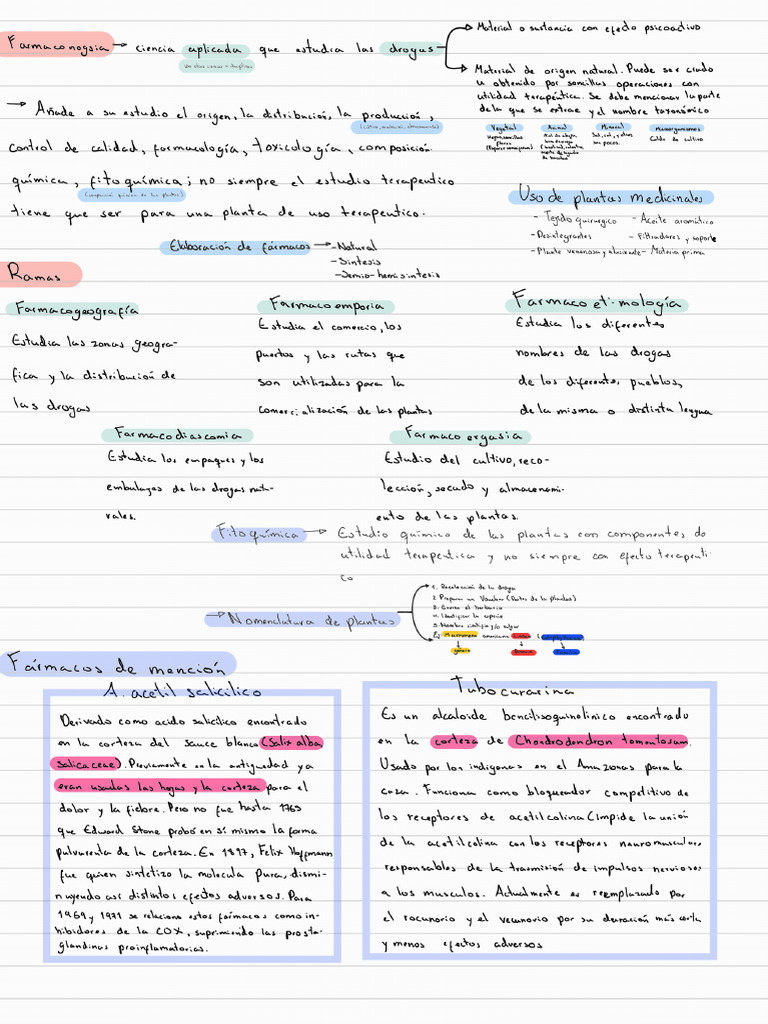 Farmacognosia → ciencia aplicada que estudia las drogas
→ Material o sustancia con efecto psicoactivo
→ Material de origen natural. Puede ser crudo
u obtenido por sencillas operaciones con
utilidad terapéutica. Se debe mencionar la parte
de la que se extrae y el nombre taxonómico
Vegetal Animal Mineral Microorganismos
Caldo de cultivo
→ Añade a su estudio el origen, la distribución, la producción,
control de calidad, farmacología, toxicología, composición
química, fitoquímica; no siempre el estudio terapeutico
tiene que ser para una planta de uso terapeutico.
Uso de plantas medicinales
- Tejido quirurgico - Aceite aromático
- Desintegrantes - Filtradores y soporte
- Plante venenosa y alucinante - Materia prima
Elaboración de fármacos → - Natural
- Sintesis
- Semio-hemisintesis
Ramas
Farmacogeografía
Estudia las zonas geogra-
fica y la distribución de
las drogas
Farmacoemporia
Estudia el comercio, los
puertos y las rutas que
son utilizadas para la
comercialización de las plantas
Farmacoetimología
Estudia los diferentes
nombres de las drogas
de los diferentes pueblos,
de la misma o distinta lengua
Farmacodiascomia
Estudia los empaques y los
embalages de las drogas natu-
rales.
Farmacoergasia
Estudio del cultivo, reco-
lección, secado y almacenami-
ento de las plantas.
Fitoquímica → Estudio químico de las plantas con componentes de
utilidad terapeutica y no siempre con efecto terapeuti-
co
→ Nomenclatura de plantas
1. Recolección de la droga
2. Preparar un Voucher (Partes de la plantas)
4. Identificar la especie
Fármacos de mención
A. acetil salicilico
Derivado como acido salicilico encontrado
en la corteza del sauce blanco (Salix alba,
salicaceae). Previamente en la antiguedad ya
eran usadas las hojas y la corteza para el
dolor y la fiebre. Pero no fue hasta 1763
que Edward Stone probó en si mismo la forma
pulvurenta de la corteza. En 1897, Felix Hoffmann
fue quien sintetizo la molecula pura, dismi-
nuyendo asi distintos efectos adversos. Para
1969 y 1971 se relaciono estos fármacos como in-
hibidores de la COX, suprimiendo las prosta-
glandinas proinflamatorias.
Tubocurarina
Es un alcaloide bencilisoquinolinico encontrado
en la corteza de Chondrodendron tomentosum.
Usado por los indigenas en el Amazonas para la
casa. Funciona como bloqueador competitivo de
los receptores de acetilcolina (impide la unión
de la acetilcolina con los receptores neuromusculares
responsables de la trasmisión de impulsos nerviosos
a los musculos. Actualmente es reemplazado por
el rocunorio y el vecunorio por su duración más corta
y menos efectos adversos